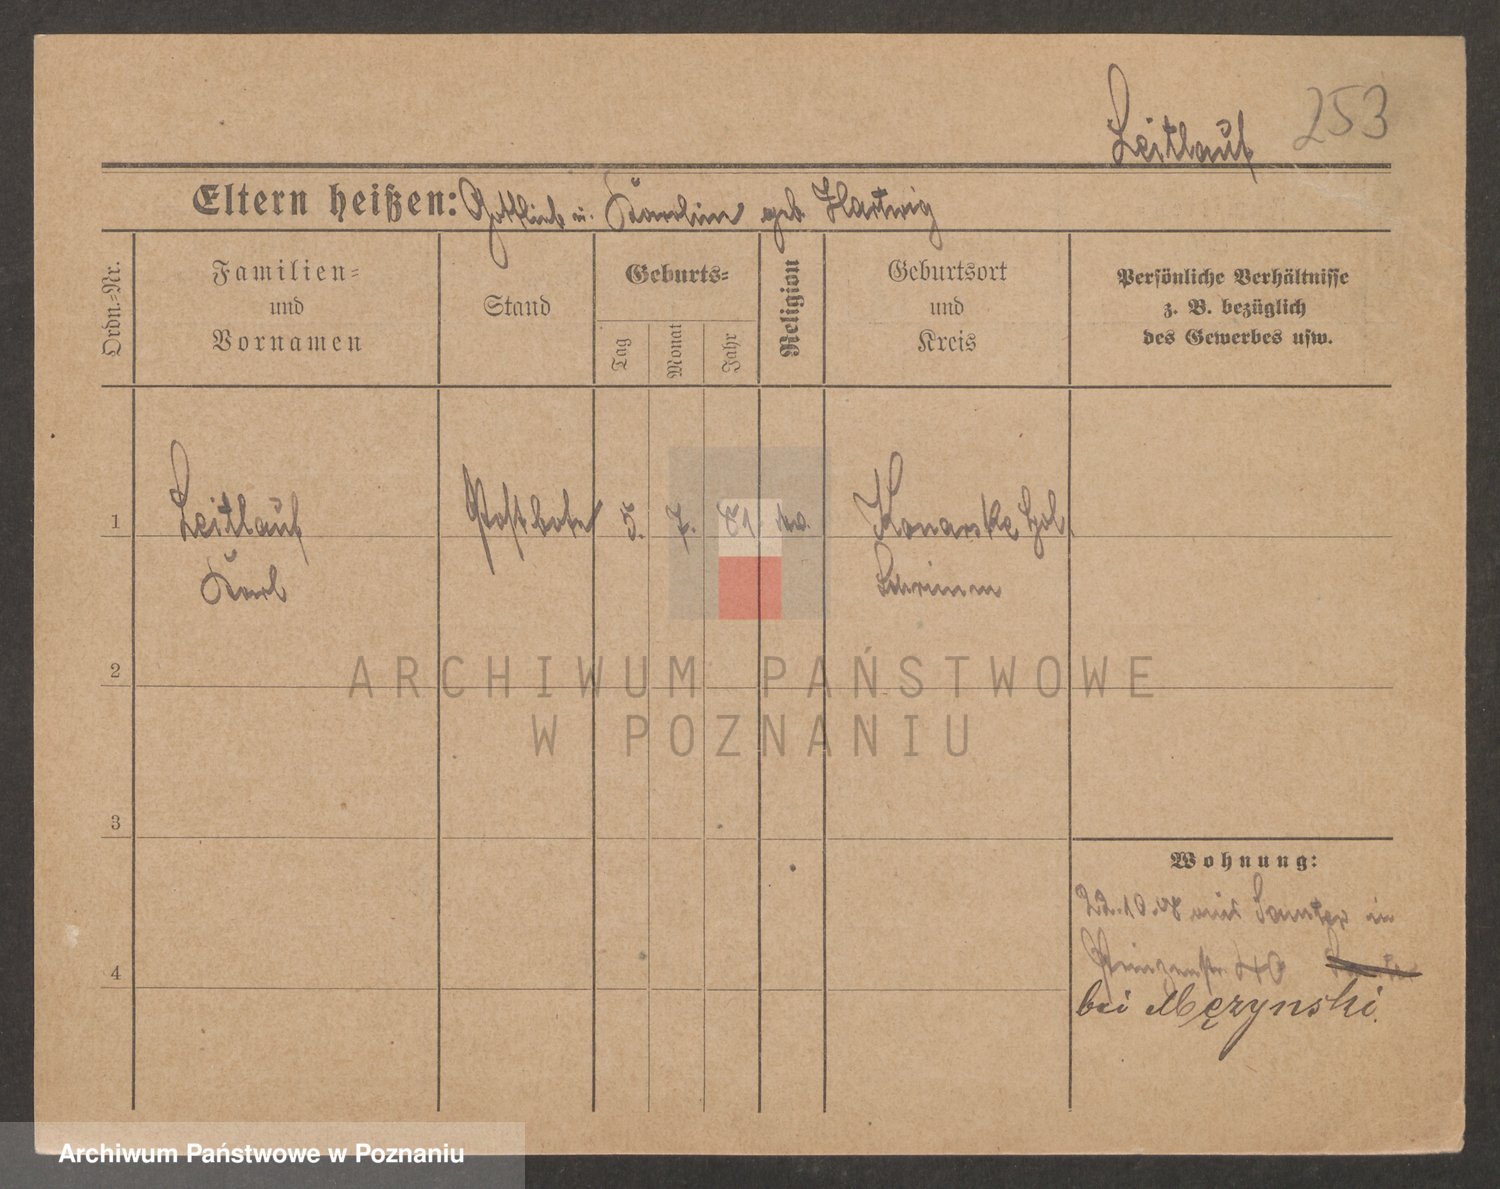 Leitlauf 253
Eltern heißen: Gottlieb u. Karoline geb. Hartwig
Ordn.-Nr.
Familien-
und
Vornamen
Stand
Geburts-
Tag
Monat
Jahr
Religion
Geburtsort
und
Kreis
Persönliche Verhältnisse
z. B. bezüglich
des Gewerbes usw.
1
Leitlauf Postbote 5. 7. 81 ev. Konarske Hol.
Karl Schrimm
2
ARCHIWUM PAŃSTWOWE
W POZNANIU
3
Wohnung:
22.10.08 aus Samter in
4
Prinzenstr. 40
bei Męzynski.
Archiwum Państwowe w Poznaniu